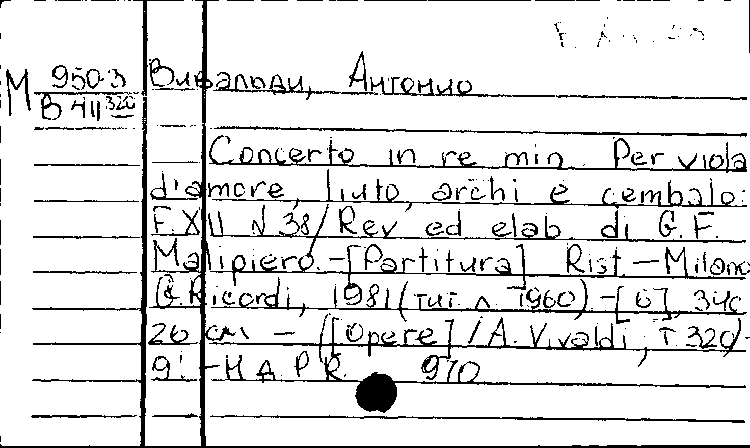 M 950-3 Вивальди, Антонио
В 411 320
Concerto in re min. Per viola
d'amore, liuto, archi e cembalo:
F.XII N 38/Rev. ed elab. di G.F.
Malipiero.-[Partitura] Rist.-Milano
G.Ricordi, 1981 (тит л. 1960)-[6], 34с
26 см - ([Opere] / A. Vivaldi, T 320)-
9' - Н.А. P.R. 970